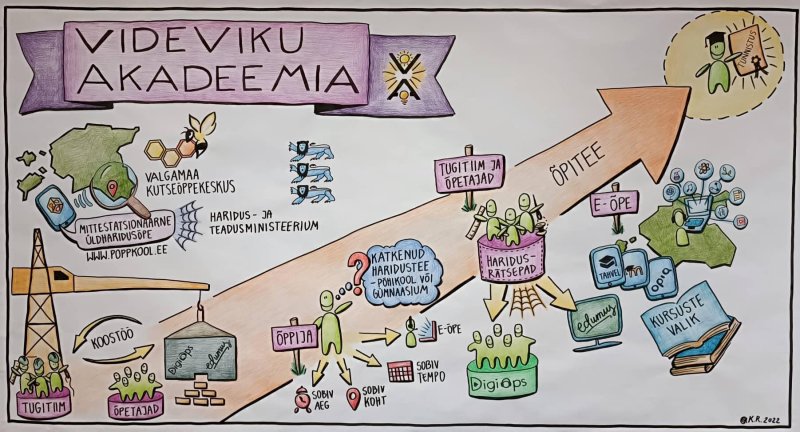 VIDEVIKU
AKADEEMIA
TUNNISTUS
VALGAMAA
KUTSEÕPPEKESKUS
MITTESTATSIONAARNE
ÜLDHARIDUSÕPE
WWW.POPPKOOL.EE
HARIDUS- JA
TEADUSMINISTEERIUM
TUGITIIM JA
ÕPETAJAD
ÕPITEE
E-ÕPE
HARIDUS-
RÄTSEPAD
KATKENUD
HARIDUSTEE
- PÕHIKOOL VÕI
GÜMNAASIUM
?
TAHVEL
OPIQ
edumus
KURSUSTE
VALIK
KOOSTÖÖ
DigiÕps
edumus
ÕPPIJA
E-ÕPE
SOBIV
TEMPO
SOBIV
AEG
SOBIV
KOHT
DigiÕps
TUGITIIM
ÕPETAJAD
@K.R. 2022